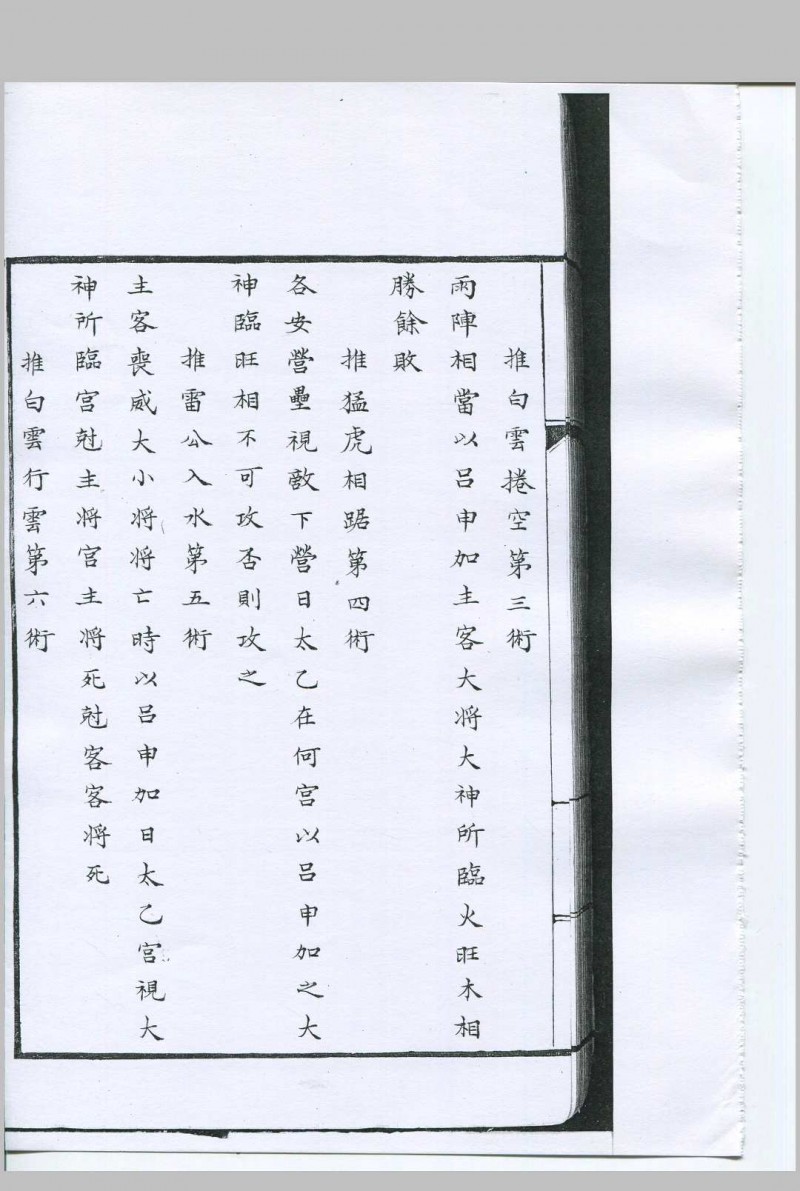 推白雲捲空第三術
兩陣相當以呂申加主客大將大神所臨火旺木相
勝餘敗
推猛虎相踞第四術
各安營壘視敵下營日太乙在何宮以呂申加之大
神臨旺相不可攻否則攻之
推雷公入水第五術
主客喪威大小將將亡時以呂申加日太乙宮視大
神所臨宮尅主將宮主將死尅客客將死
推白雲行雲第六術